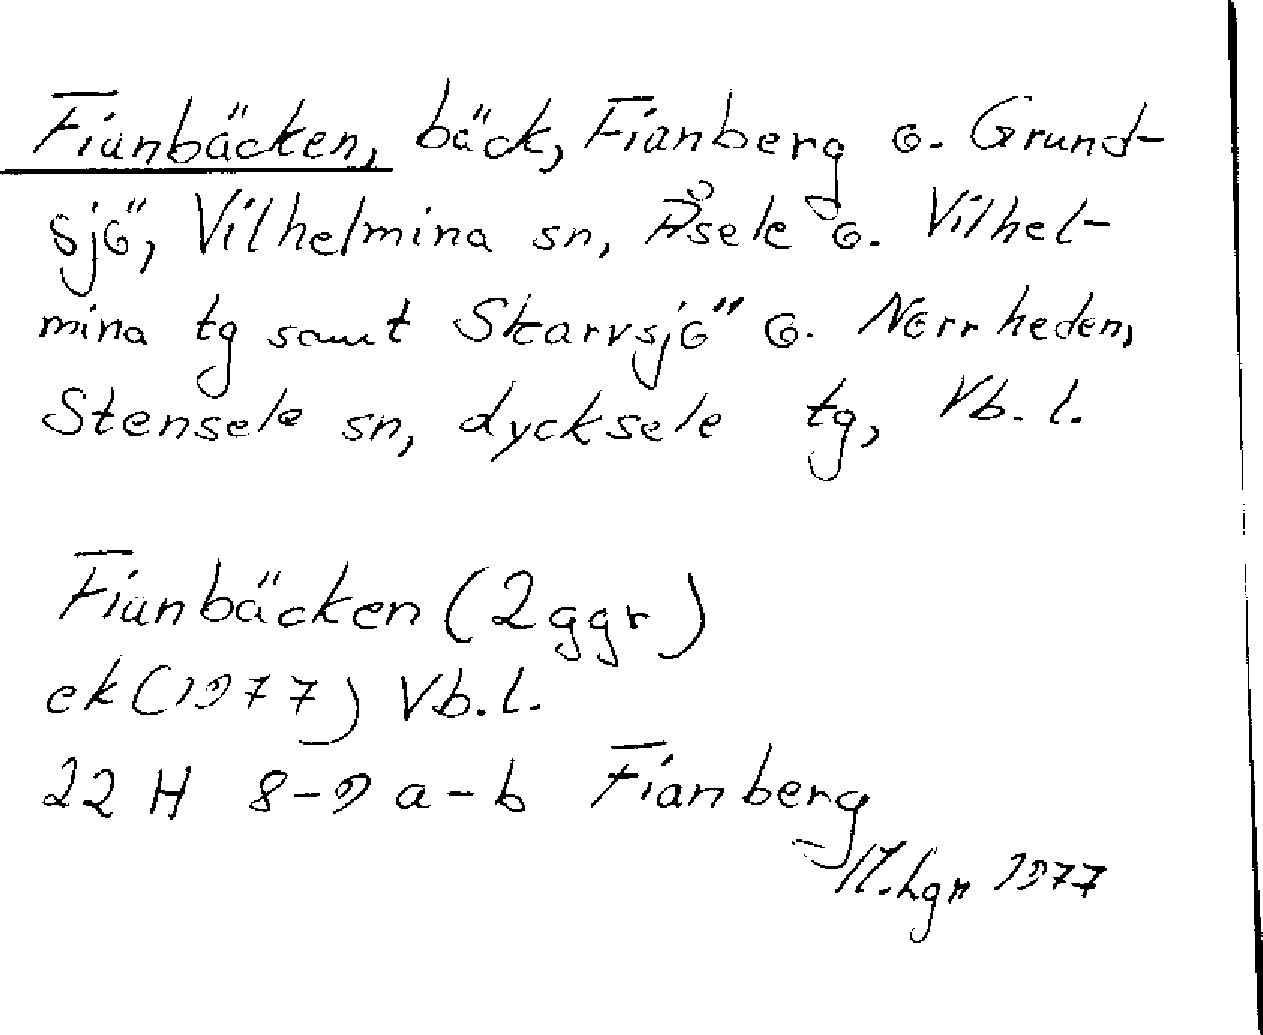 Fianbäcken, bäck, Fianberg o. Grund-
sjö, Vilhelmina sn, Åsele o. Vilhel-
mina tg samt Skarvsjö o. Norrheden,
Stensele sn, Lycksele tg, Vb. l.
Fianbäcken (2 ggr)
ek (1977) Vb. l.
22 H 8-9 a-b Fianberg
Lgn 1977